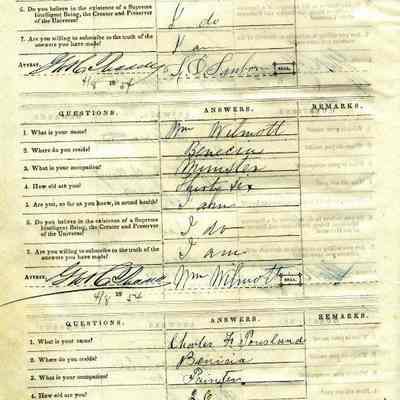 6. Do you believe in the existence of a Supreme
Intelligent Being, the Creator and Preserver
of the Universe?
I do
7. Are you willing to subscribe to the truth of the
answers you have made?
I am
ATTEST,
SEAL
4/8 1854
QUESTIONS. ANSWERS. REMARKS.
1. What is your name? Wm Wilmott
2. Where do you reside? Benecia
3. What is your occupation? Minister
4. How old are you? Thirty Six
5. Are you, as far as you know, in sound health? I am
6. Do you believe in the existence of a Supreme
Intelligent Being, the Creator and Preserver
of the Universe?
I do
7. Are you willing to subscribe to the truth of the
answers you have made?
I am
ATTEST, Wm Wilmott SEAL
4/8 1854
QUESTIONS. ANSWERS. REMARKS.
1. What is your name? Charles
2. Where do you reside? Benisia
3. What is your occupation? Painter
4. How old are you?